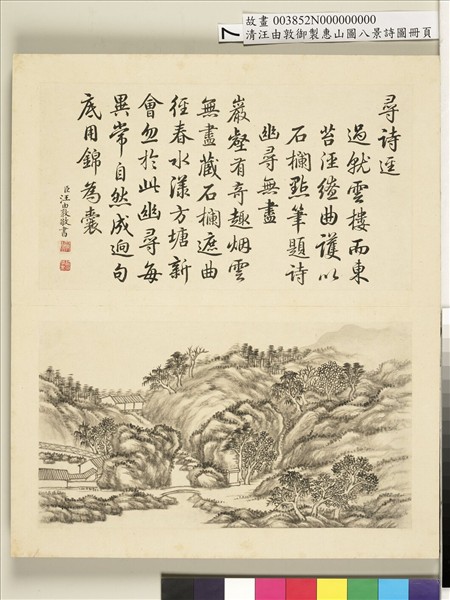 7
故畫 003852N000000000
清汪由敦御製惠山圖八景詩圖冊頁
尋詩逕
過就雲樓而東
苔逕繚曲護以
石欄點筆題詩
幽尋無盡
巖壑有奇趣烟雲
無盡藏石欄遮曲
徑春水漾方塘新
會忽於此幽尋每
異常自然成迥句
底用錦為囊
臣汪由敦敬書